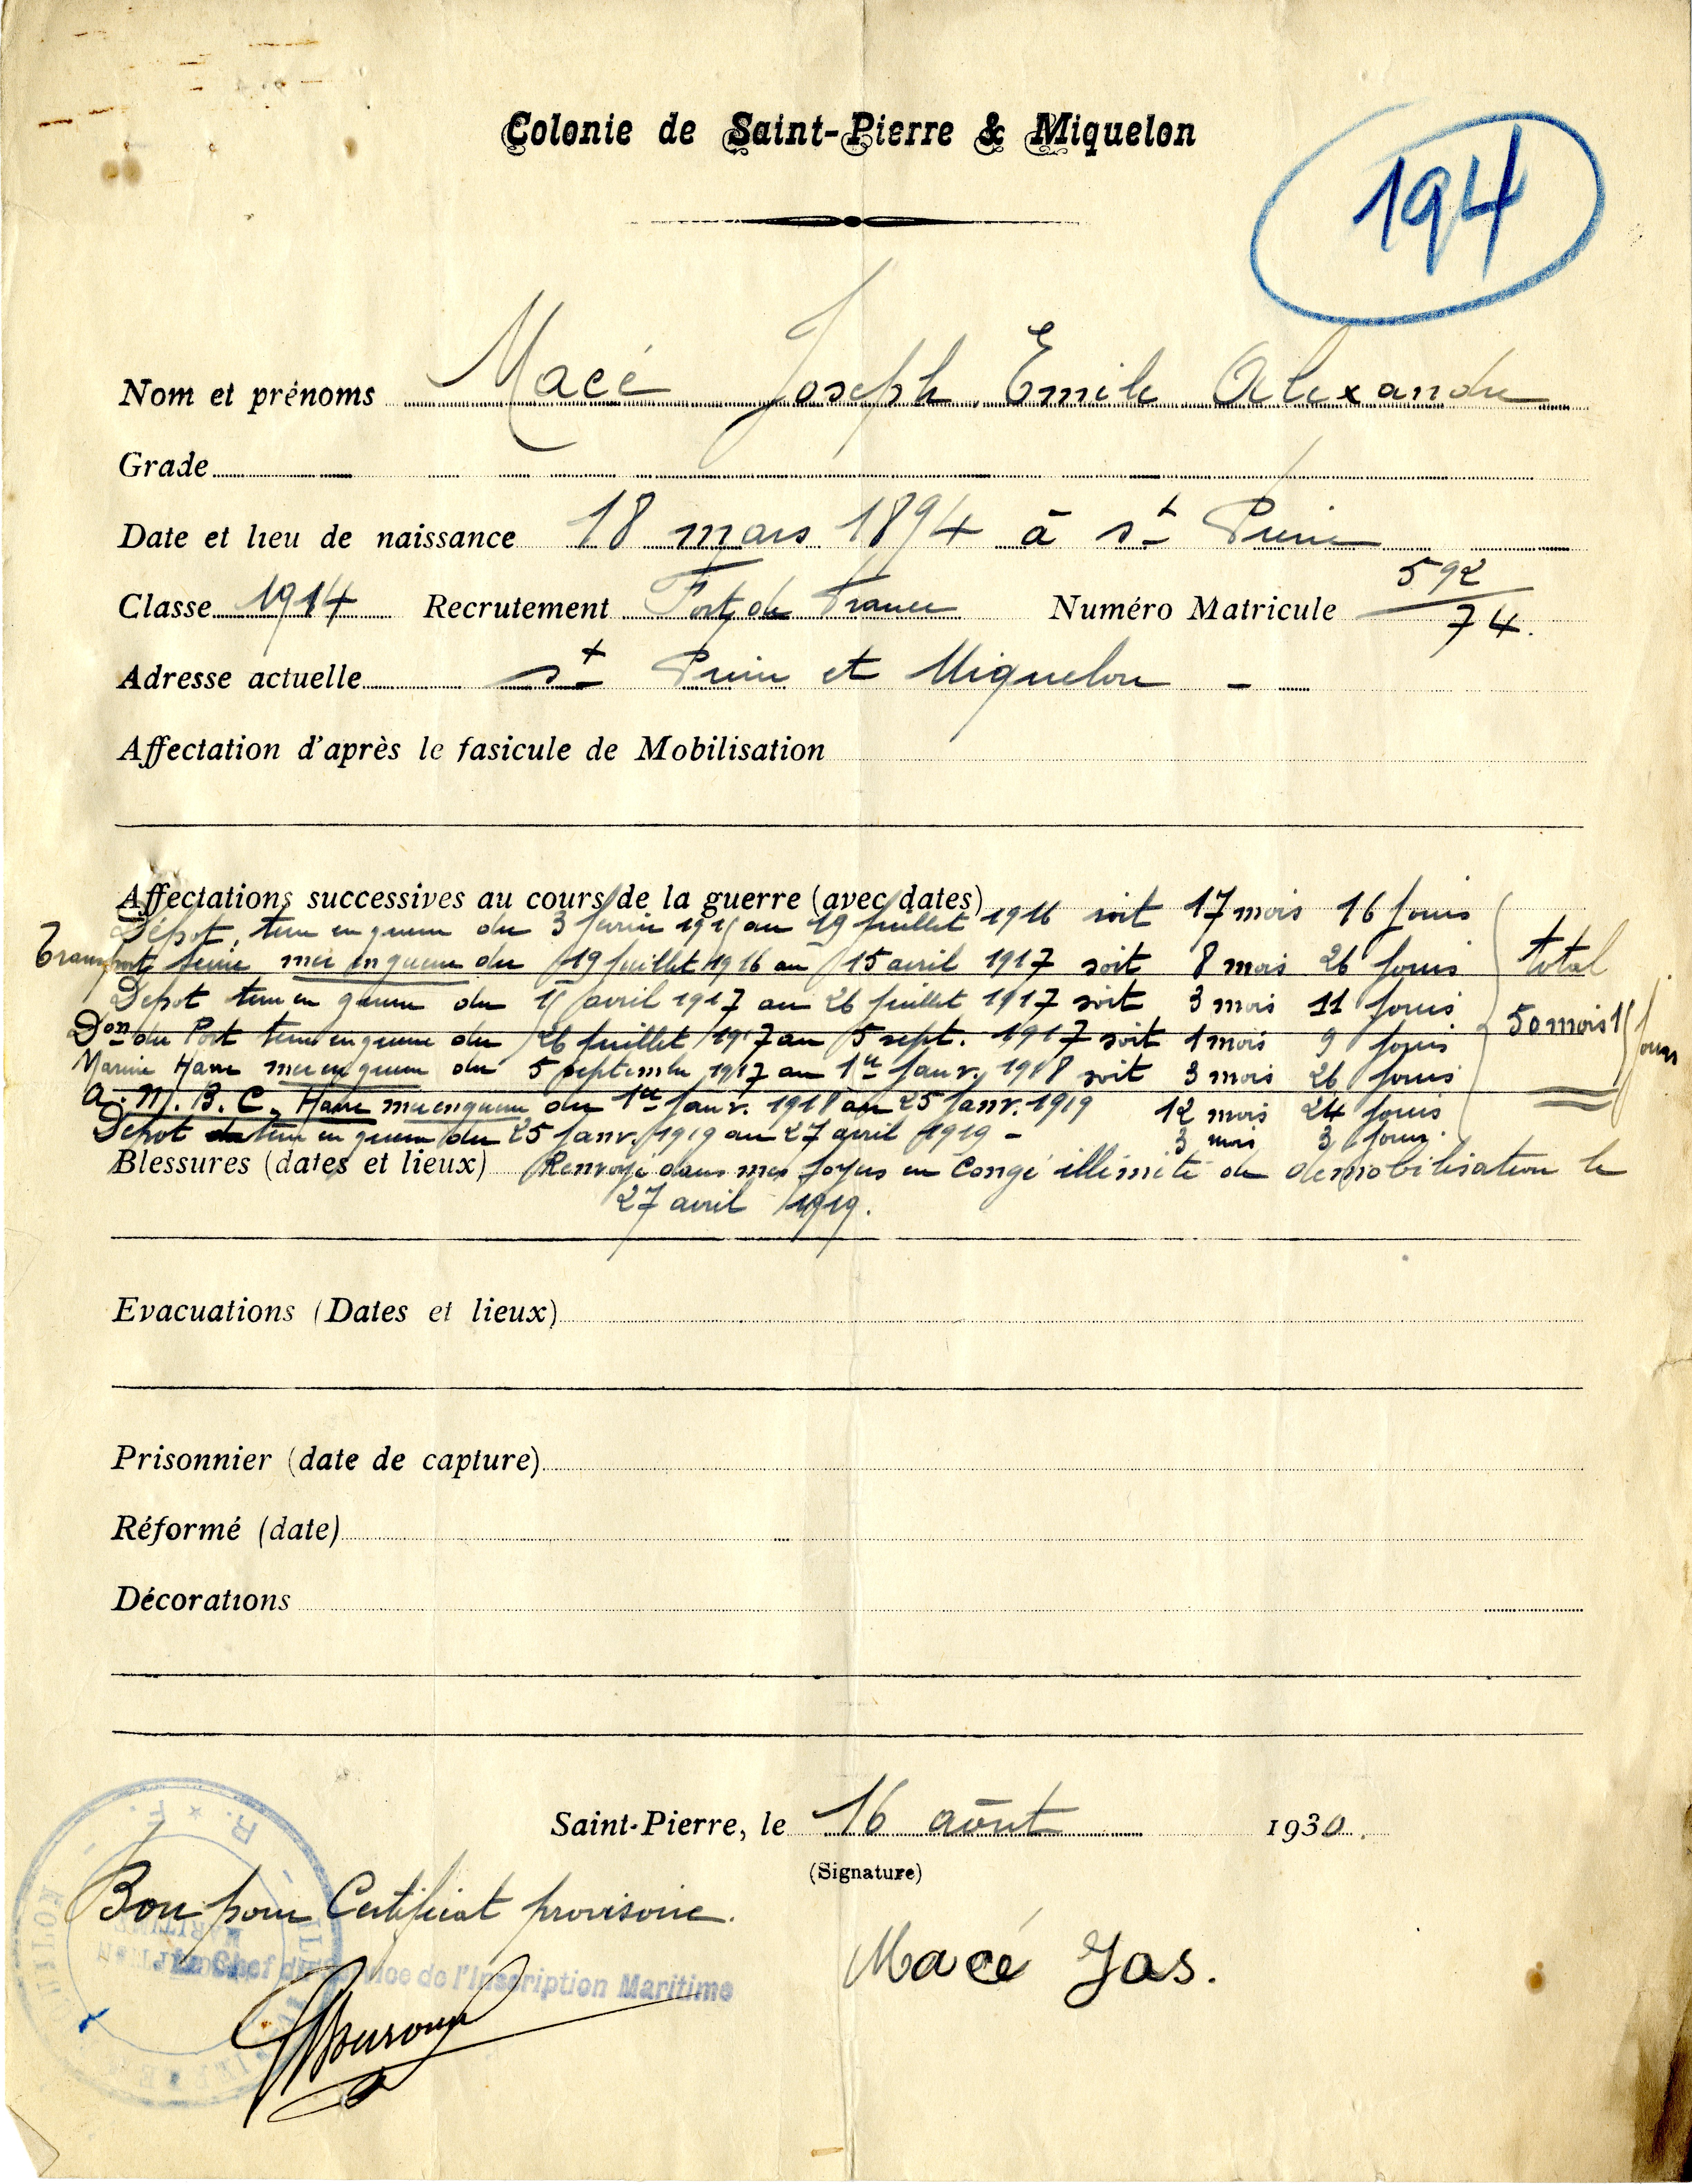 Colonie de Saint-Pierre & Miquelon
194
Nom et prénoms Macé Joseph Emile Alexandre
Grade
Date et lieu de naissance 18 mars 1894 à St Pierre
592
Classe 1914 Recrutement Fort de France Numéro Matricule 74.
Adresse actuelle St Pierre et Miquelon -
Affectation d'après le fasicule de Mobilisation
Affectations successives au cours de la guerre (avec dates)
Dépot, terre en guerre du 3 février 1915 au 19 juillet 1916 soit 17 mois 16 jours
Transport Seine mer en guerre du 19 juillet 1916 au 15 avril 1917 soit 8 mois 26 jours total
Depot terre en guerre du 15 avril 1917 au 26 juillet 1917 soit 3 mois 11 jours
Don du Port terre en guerre du 26 juillet 1917 au 5 sept. 1917 soit 1 mois 9 jours 50 mois 15 jours
Marine Havre mer en guerre du 5 septembre 1917 au 1er janv. 1918 soit 3 mois 26 jours
A.M.B.C. Havre mer en guerre du 1er janv. 1918 au 25 janv. 1919 12 mois 24 jours
Dépot terre en guerre du 25 janv. 1919 au 27 avril 1919 - 3 mois 3 jours.
Blessures (dates et lieux) Renvoyé dans mes foyers en Congé illimité de démobilisation le
27 avril 1919.
Evacuations (Dates et lieux)
Prisonnier (date de capture)
Réformé (date)
Décorations
Saint-Pierre, le 16 août 1930.
(Signature)
R. F.
Bon pour Certificat provisoire.
Le Chef du Service de l'Inscription Maritime
Macé Jos.